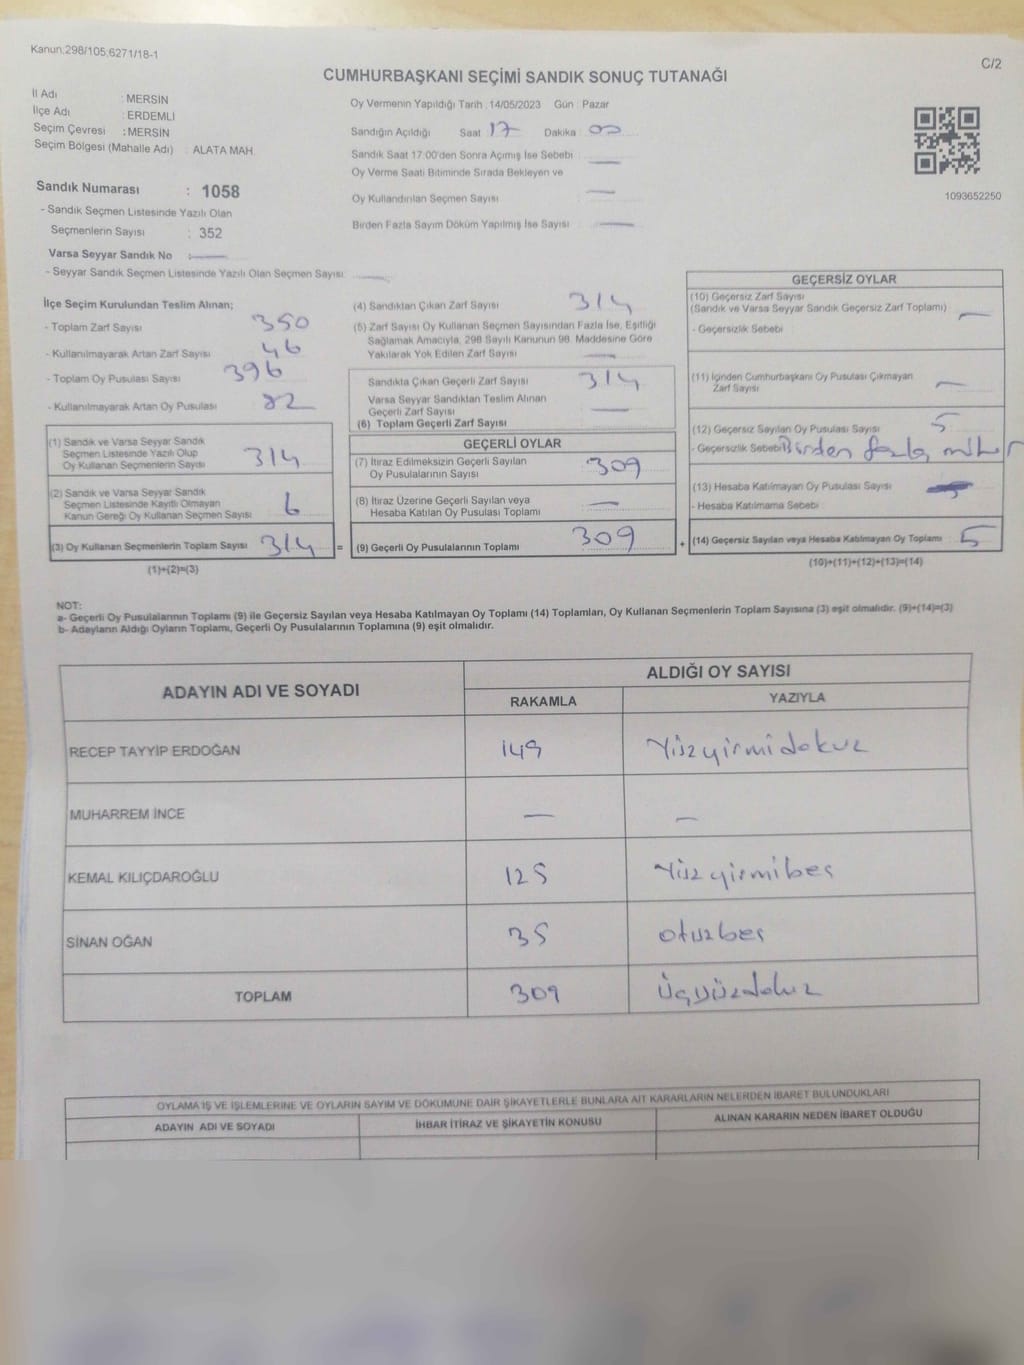 Kanun;298/105,6271/18-1
C/2
CUMHURBAŞKANI SEÇİMİ SANDIK SONUÇ TUTANAĞI
İl Adı : MERSİN
İlçe Adı : ERDEMLİ
Seçim Çevresi : MERSİN
Seçim Bölgesi (Mahalle Adı) : ALATA MAH.
Oy Vermenin Yapıldığı Tarih : 14/05/2023 Gün : Pazar
Sandığın Açıldığı Saat : 17 Dakika : 00
Sandık Saat 17:00'den Sonra Açımış İse Sebebi : —
Oy Verme Saati Bitiminde Sırada Bekleyen ve
Oy Kullandırılan Seçmen Sayısı : —
Birden Fazla Sayım Döküm Yapılmış İse Sayısı : —
1093652250
Sandık Numarası : 1058
- Sandık Seçmen Listesinde Yazılı Olan
Seçmenlerin Sayısı : 352
Varsa Seyyar Sandık No : —
- Seyyar Sandık Seçmen Listesinde Yazılı Olan Seçmen Sayısı: —
İlçe Seçim Kurulundan Teslim Alınan;
- Toplam Zarf Sayısı 350
- Kullanılmayarak Artan Zarf Sayısı 46
- Toplam Oy Pusulası Sayısı 396
- Kullanılmayarak Artan Oy Pusulası 82
(1) Sandık ve Varsa Seyyar Sandık
Seçmen Listesinde Yazılı Olup
Oy Kullanan Seçmenlerin Sayısı 314
(2) Sandık ve Varsa Seyyar Sandık
Seçmen Listesinde Kayıtlı Olmayan
Kanun Gereği Oy Kullanan Seçmen Sayısı 6
(3) Oy Kullanan Seçmenlerin Toplam Sayısı 314 =
(1)+(2)=(3)
(4) Sandıktan Çıkan Zarf Sayısı 314
(5) Zarf Sayısı Oy Kullanan Seçmen Sayısından Fazla İse, Eşitliği
Sağlamak Amacıyla, 298 Sayılı Kanunun 98. Maddesine Göre
Yakılarak Yok Edilen Zarf Sayısı —
Sandıkta Çıkan Geçerli Zarf Sayısı 314
Varsa Seyyar Sandıktan Teslim Alınan
Geçerli Zarf Sayısı —
(6) Toplam Geçerli Zarf Sayısı
GEÇERLİ OYLAR
(7) İtiraz Edilmeksizin Geçerli Sayılan
Oy Pusulalarının Sayısı 309
(8) İtiraz Üzerine Geçerli Sayılan veya
Hesaba Katılan Oy Pusulası Toplamı —
(9) Geçerli Oy Pusulalarının Toplamı 309 +
GEÇERSİZ OYLAR
(10) Geçersiz Zarf Sayısı
(Sandık ve Varsa Seyyar Sandık Geçersiz Zarf Toplamı) —
- Geçersizlik Sebebi
(11) İçinden Cumhurbaşkanı Oy Pusulası Çıkmayan
Zarf Sayısı —
(12) Geçersiz Sayılan Oy Pusulası Sayısı 5
- Geçersizlik Sebebi Birden fazla mühür
(13) Hesaba Katılmayan Oy Pusulası Sayısı
- Hesaba Katılmama Sebebi
(14) Geçersiz Sayılan veya Hesaba Katılmayan Oy Toplamı 5
(10)+(11)+(12)+(13)=(14)
NOT:
a- Geçerli Oy Pusulalarının Toplamı (9) ile Geçersiz Sayılan veya Hesaba Katılmayan Oy Toplamı (14) Toplamları, Oy Kullanan Seçmenlerin Toplam Sayısına (3) eşit olmalıdır. (9)+(14)=(3)
b- Adayların Aldığı Oyların Toplamı, Geçerli Oy Pusulalarının Toplamına (9) eşit olmalıdır.
ADAYIN ADI VE SOYADI
ALDIĞI OY SAYISI
RAKAMLA YAZIYLA
RECEP TAYYİP ERDOĞAN 149 Yüzyirmidokuz
MUHARREM İNCE — —
KEMAL KILIÇDAROĞLU 125 Yüzyirmibeş
SİNAN OĞAN 35 otuzbeş
TOPLAM 309 üçyüzdokuz
OYLAMA İŞ VE İŞLEMLERİNE VE OYLARIN SAYIM VE DÖKÜMÜNE DAİR ŞİKAYETLERLE BUNLARA AİT KARARLARIN NELERDEN İBARET BULUNDUKLARI
ADAYIN ADI VE SOYADI İHBAR İTİRAZ VE ŞİKAYETİN KONUSU ALINAN KARARIN NEDEN İBARET OLDUĞU